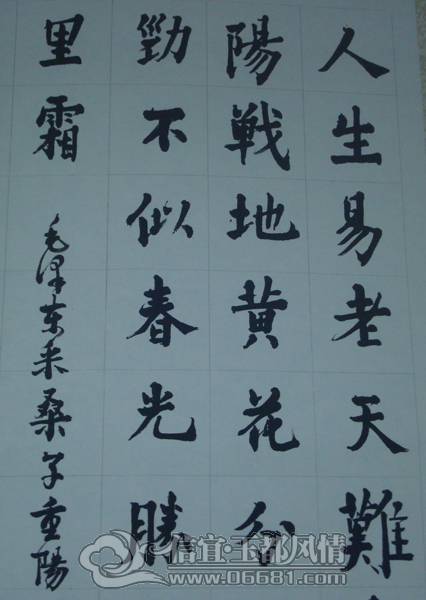 人生易老天難
陽戦地黄花分
勁不似春光勝
里霜
毛泽东采桑子重陽
信宜·玉都风情
www.06681.com